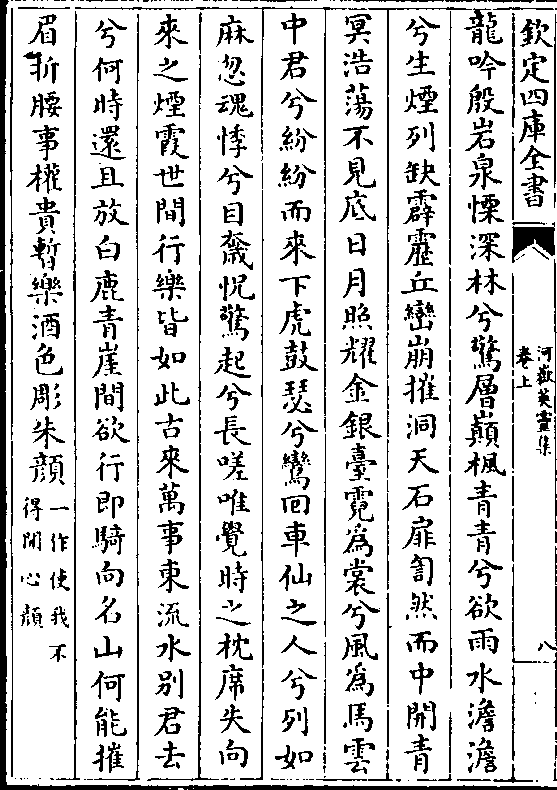 欽定四庫全書
河嶽英靈集
卷上
八
龍吟殷岩泉慄深林兮驚層巔楓青青兮欲雨水澹澹
兮生煙列缺霹靂丘巒崩摧洞天石扉訇然而中開青
冥浩蕩不見底日月照耀金銀臺霓為裳兮風為馬雲
中君兮紛紛而來下虎鼓瑟兮鸞囘車仙之人兮列如
麻忽魂悸兮目㡜怳驚起兮長嗟唯覺時之枕席失向
來之煙霞世間行樂皆如此古來萬事東流水別君去
兮何時還且放白鹿青崖間欲行即騎向名山何能摧
眉折腰事權貴暫樂酒色彫朱顔
一作使我不
得開心顔